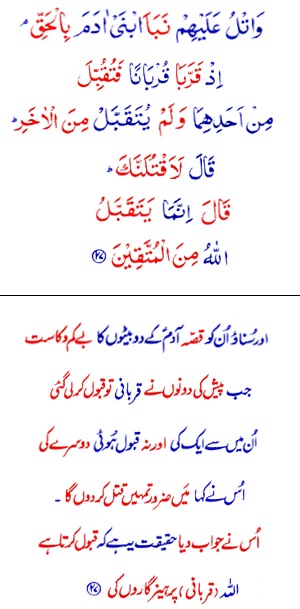 وَاتْلُ عَلَيْهِمْ نَبَاَ ابْنَىْ اٰدَمَ بِالْحَقِّ ۘ
اِذْ قَرَّبَا قُرْبَانًا فَتُقُبِّلَ
مِنْ اَحَدِهِمَا وَلَمْ يُتَقَبَّلْ مِنَ الْاٰخَرِ ؕ
قَالَ لَاَقْتُلَنَّكَ ؕ
قَالَ اِنَّمَا يَتَقَبَّلُ
اللّٰهُ مِنَ الْمُتَّقِيْنَ ﴿۲۷﴾
اور سُناؤ اُن کو قصّہ آدمؑ کے دو بیٹوں کا بے کم و کاست
جب پیش کی دونوں نے قربانی تو قبول کر لی گئی
اُن میں سے ایک کی اور نہ قبول ہُوئی دوسرے کی
اُس نے کہا مَیں ضرور تمہیں قتل کردوں گا ۔
اُس نے جواب دیا حقیقت یہ ہے کہ قبول کرتا ہے
اللہ (قربانی) پرہیزگاروں کی ﴿۲۷﴾